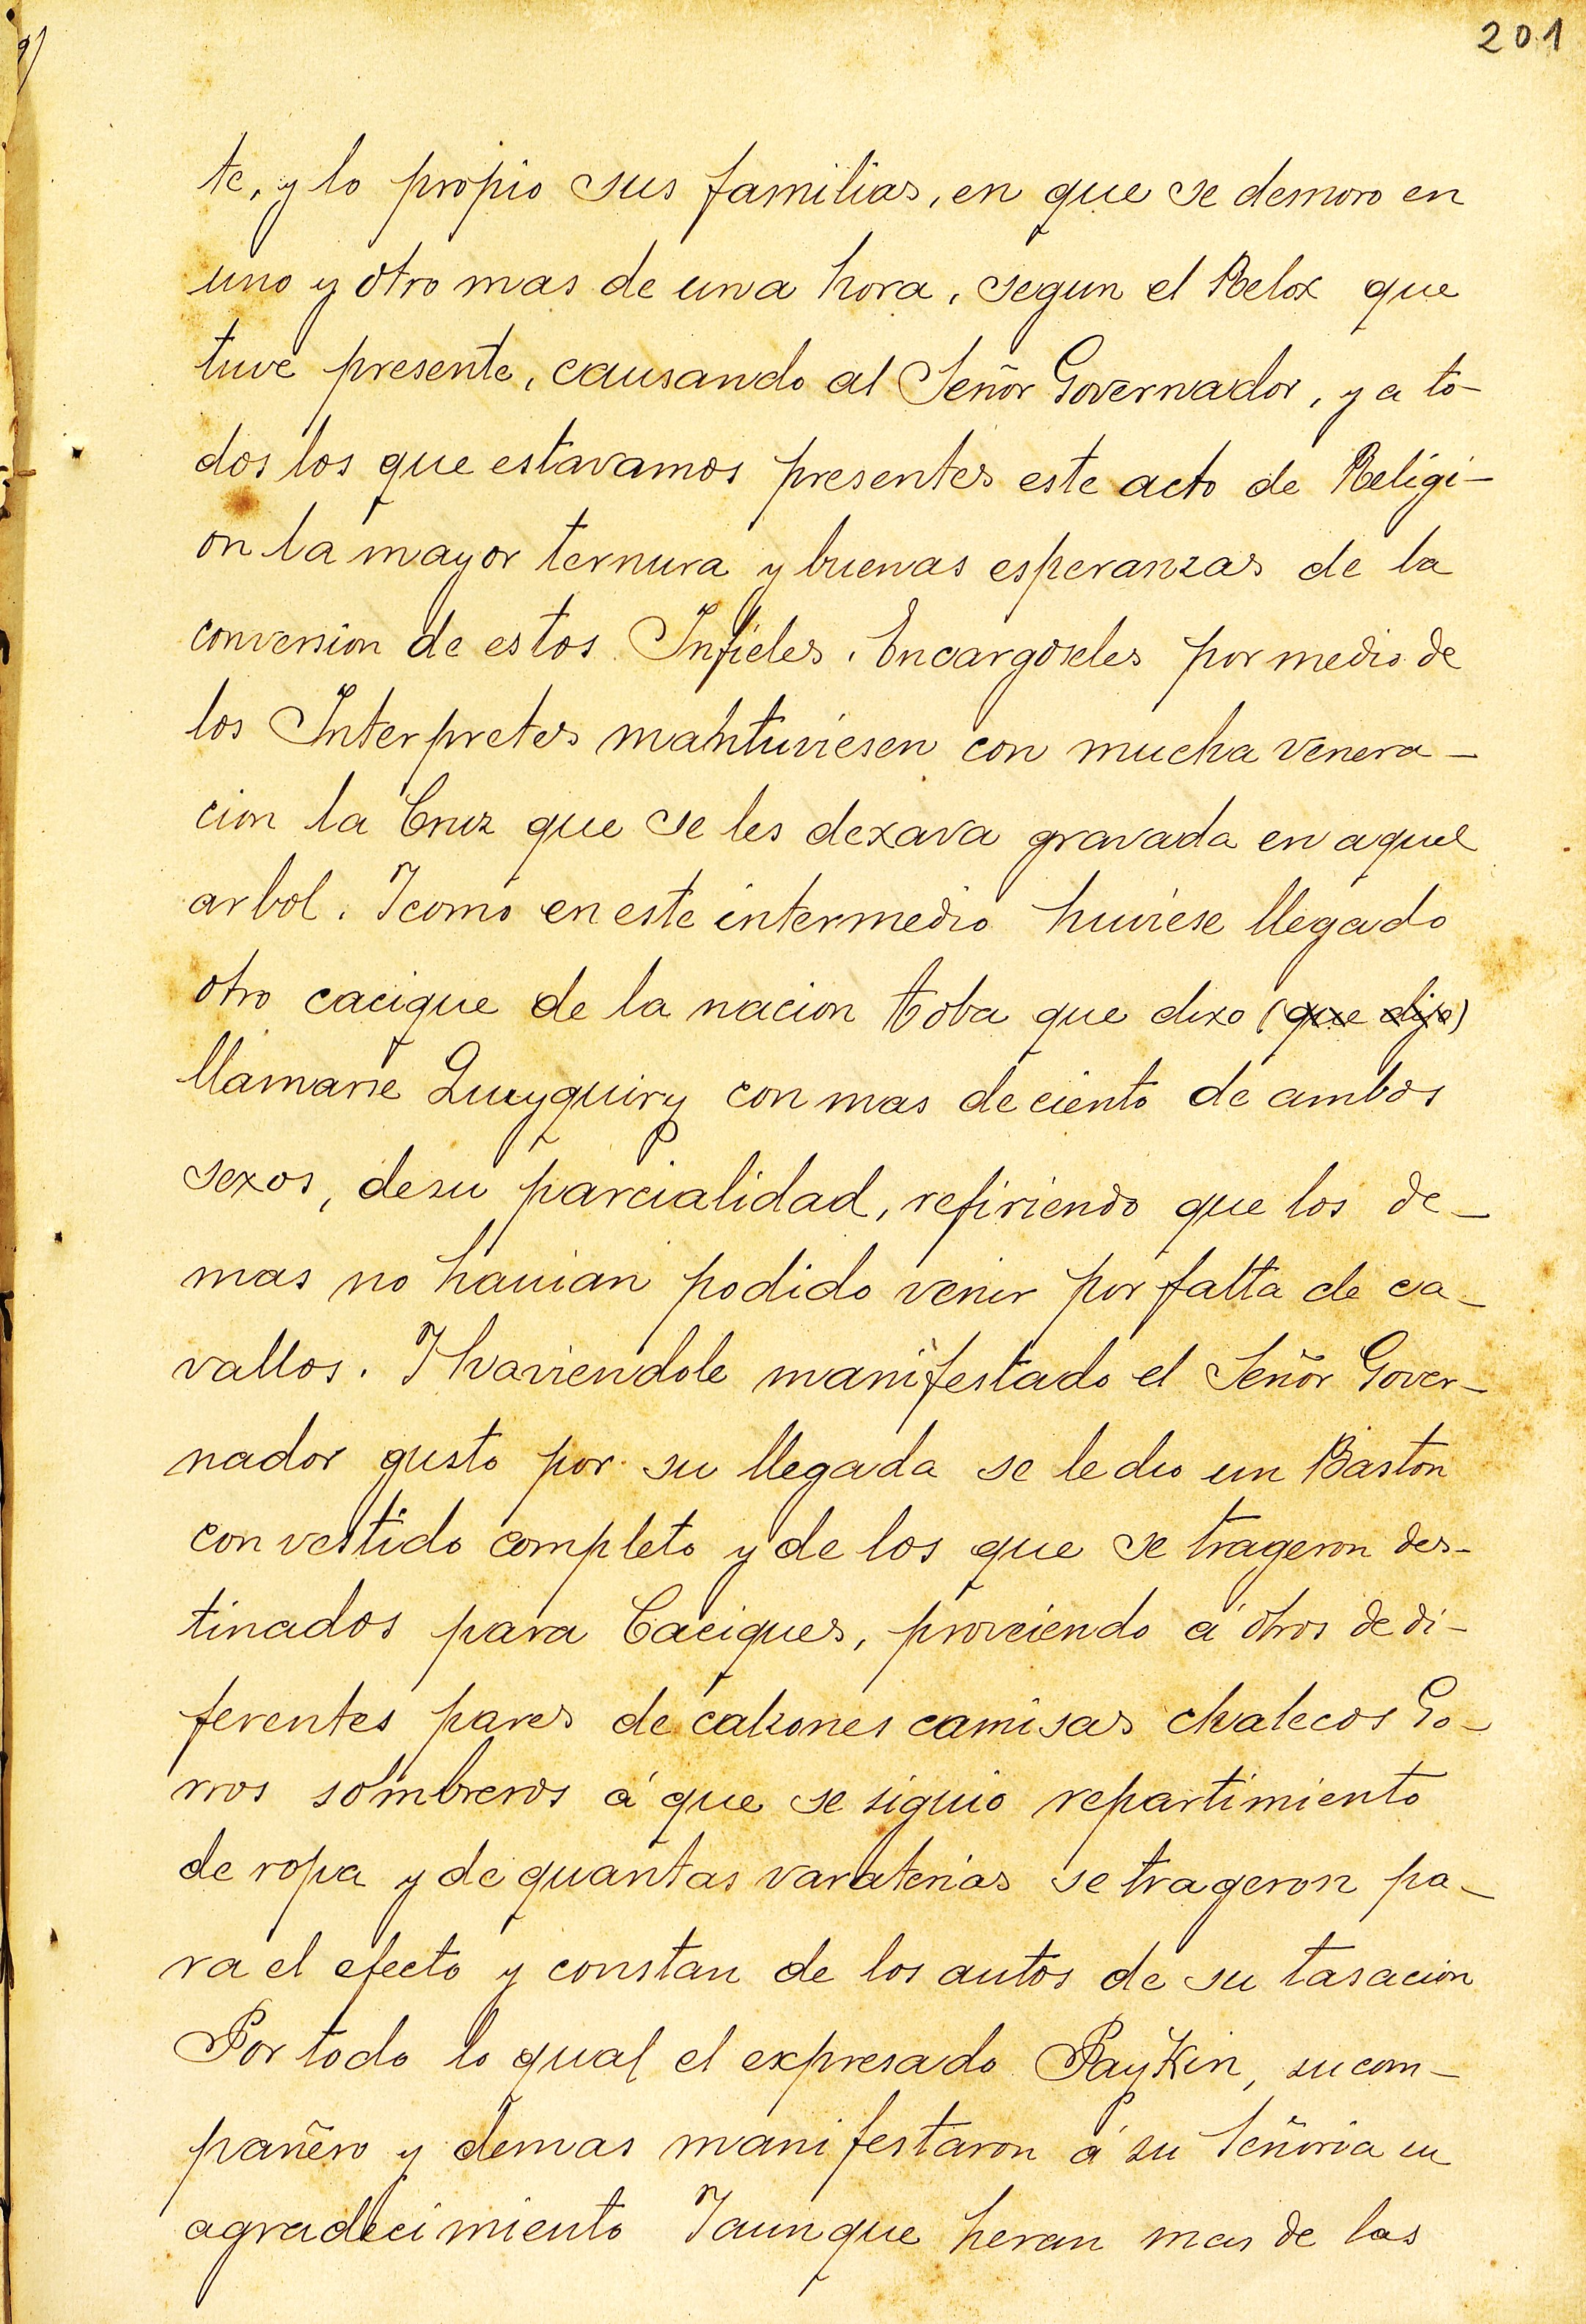 201
te, y lo propio sus familias, en que se demoro en
uno y otro mas de una hora, segun el Relox que
tuve presente, causando al Señor Governador, y a to-
dos los que estavamos presentes este acto de Religi-
on la mayor ternura y buenas esperanzas de la
conversion de estos Infieles. Encargoseles por medio de
los Interpretes mantuviesen con mucha venera-
cion la Cruz que se les dexava gravada en aquel
arbol. Y como en este intermedio huviese llegado
otro cacique de la nacion toba que dixo (que dijo)
llamarse Quyquiry con mas de ciento de ambos
sexos, de su parcialidad, refiriendo que los de-
mas no havian podido venir por falta de ca-
vallos. Y haviendole manifestado el Señor Gover-
nador gusto por su llegada se le dio un Baston
con vestido completo y de los que se trageron des-
tinados para Caciques, proviendo á otros de di-
ferentes pares de calzones camisas chalecos Go-
rros sombreros á que se siguio repartimiento
de ropa y de quantas varaterias se trageron pa-
ra el efecto y constan de los autos de su tasacion
Por todo lo qual el expresado Paykin, su com-
pañero y demas manifestaron á su Señoria su
agradecimiento Y aunque heran mas de las